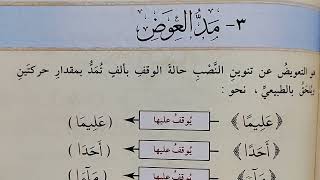 ٣- مَدُّ العِوَضِ
هو التعويضُ عن تنوينِ النَّصْبِ حالةَ الوقفِ بألفٍ تُمَدُّ بمقدارِ حركتَينِ
ويُلحَقُ بالطبيعيِّ ، نحو :
﴿عَلِيمًا﴾ يُوقَفُ عليها ( عَلِيمَا )
﴿أَحَدًا﴾ يُوقَفُ عليها ( أَحَدَا )